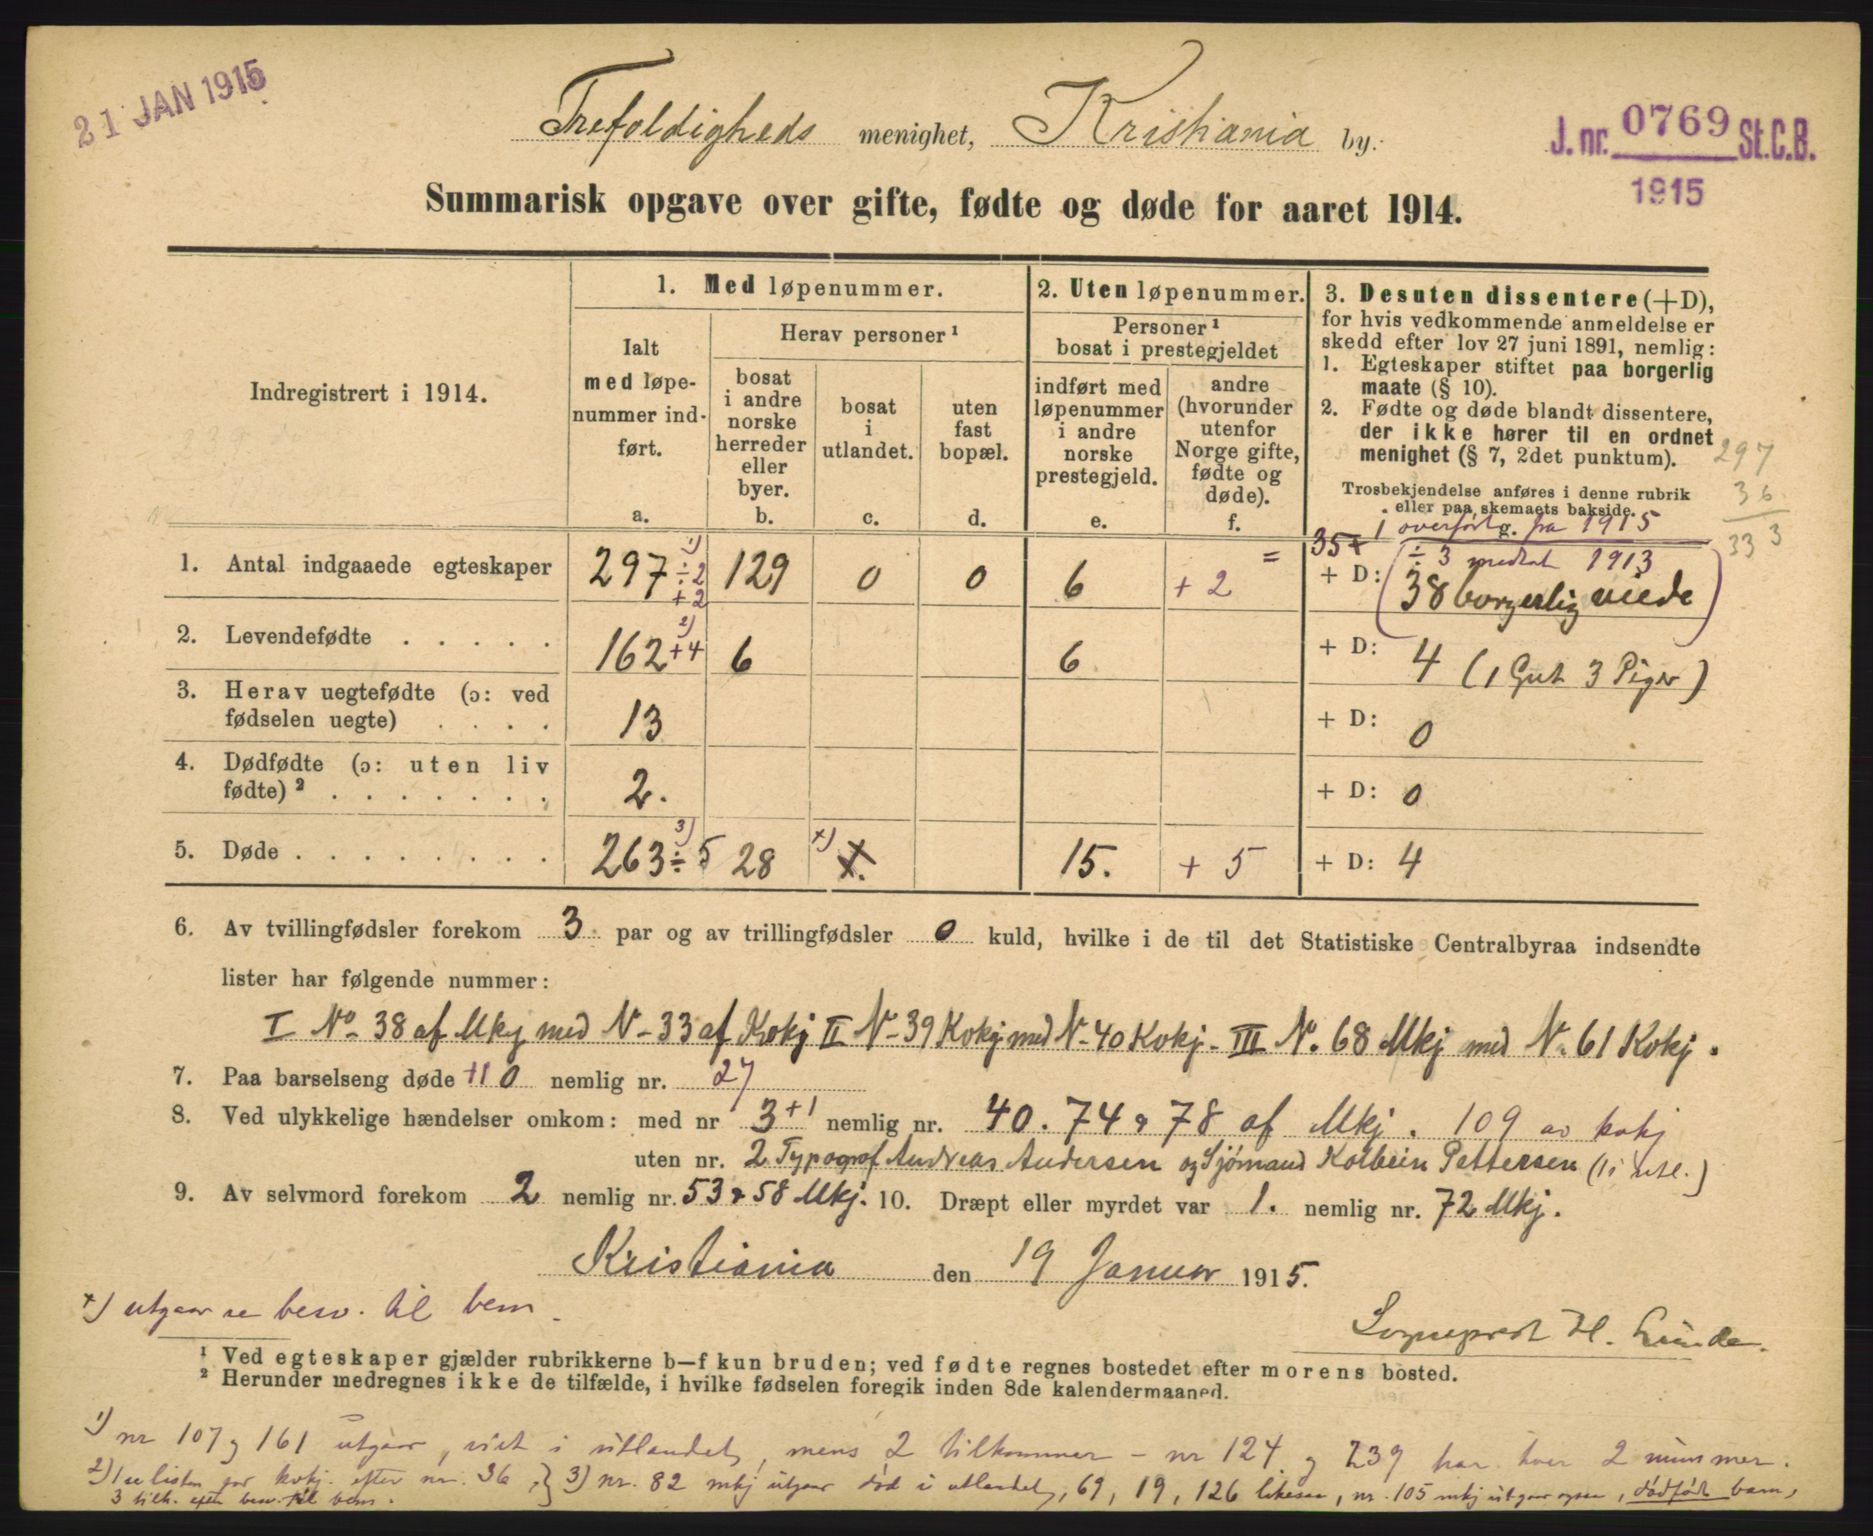 21 JAN 1915
Trefoldigheds menighet, Kristiania by.
J. nr. 0769 St. C. B.
1915
Summarisk opgave over gifte, fødte og døde for aaret 1914.
Indregistrert i 1914.
1. Med løpenummer.
Ialt med løpenummer indført.
a.
Herav personer ¹
bosat i andre norske herreder eller byer.
b.
bosat i utlandet.
c.
uten fast bopæl.
d.
2. Uten løpenummer.
Personer ¹ bosat i prestegjeldet
indført med løpenummer i andre norske prestegjeld.
e.
andre (hvorunder utenfor Norge gifte, fødte og døde).
f.
3. Desuten dissentere (+D),
for hvis vedkommende anmeldelse er
skedd efter lov 27 juni 1891, nemlig:
1. Egteskaper stiftet paa borgerlig
maate (§ 10).
2. Fødte og døde blandt dissentere,
der ikke hører til en ordnet
menighet (§ 7, 2det punktum).
Trosbekjendelse anføres i denne rubrik
eller paa skemaets bakside.
g.
297
36
333
1 overført fra 1915
1. Antal indgaaede egteskaper 297 ¹) ÷2 +2 129 0 0 6 + 2 = 35+ + D: ÷ 3 medtat 1913
38 borgerlig viede
2. Levendefødte . . . . . 162 ²) +4 6 6 + D: 4 (1 Gut 3 Piger)
3. Herav uegtefødte (ɔ: ved
fødselen uegte) . . . . 13 + D: 0
4. Dødfødte (ɔ: uten liv
fødte) ² . . . . . . . 2. + D: 0
5. Døde . . . . . . . . 263 ³) ÷ 5 28 +) 15. + 5 + D: 4
6. Av tvillingfødsler forekom 3 par og av trillingfødsler 0 kuld, hvilke i de til det Statistiske Centralbyraa indsendte
lister har følgende nummer:
I No 38 af Mkj med N- 33 af Kvkj II N- 39 Kvkj med N- 40 Kvkj - III N. 68 Mkj med N. 61 Kvkj.
7. Paa barselseng døde +1 0 nemlig nr. 27
8. Ved ulykkelige hændelser omkom: med nr 3 +1 nemlig nr. 40. 74 & 78 af Mkj. 109 av kvkj
uten nr. 2 Typograf Andreas Andersen og Sjømand Kolbein Pettersen (1 i utl.)
9. Av selvmord forekom 2 nemlig nr. 53 & 58 Mkj. 10. Dræpt eller myrdet var 1. nemlig nr. 72 Mkj.
Kristiania den 19 Januar 1915.
+) utgaar se besv. til bem.
Sogneprest H. Lunde.
¹ Ved egteskaper gjælder rubrikkerne b—f kun bruden; ved fødte regnes bostedet efter morens bosted.
² Herunder medregnes ikke de tilfælde, i hvilke fødselen foregik inden 8de kalendermaaned.
¹) nr 107 og 161 utgaar, viet i utlandet, mens 2 tilkommer - nr 124 og 239 har hver 2 nummer.
2) 1 se listen for kvkj. efter nr. 36, } 3) nr. 82 mkj utgaar død i utlandet, 69, 19, 126 likesaa, nr. 105 mkj utgaar ogsaa, dødfødt barn,
3 tilk. efter besv. til bem.